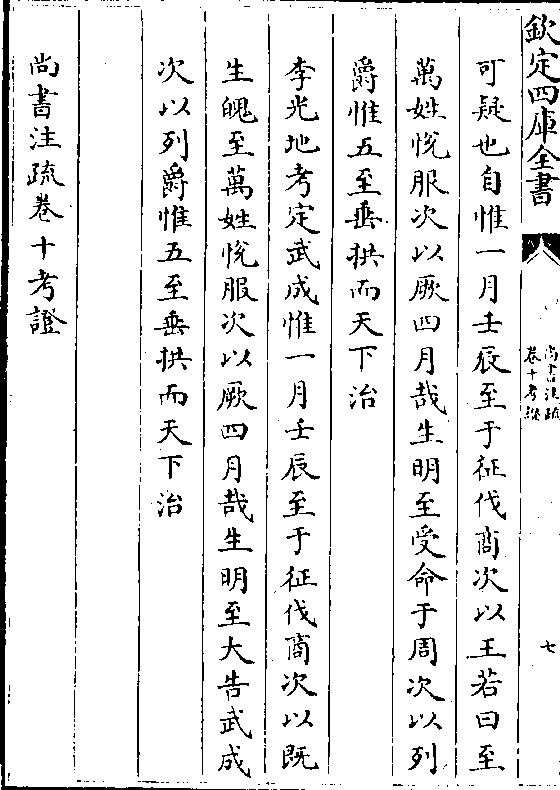 欽定四庫全書
尚書注疏
卷十考證
七
可疑也自惟一月壬辰至于征伐商次以王若曰至
萬姓悅服次以厥四月哉生明至受命于周次以列
爵惟五至垂拱而天下治
李光地考定武成惟一月壬辰至于征伐商次以既
生魄至萬姓悅服次以厥四月哉生明至大告武成
次以列爵惟五至垂拱而天下治
尚書注疏卷十考證